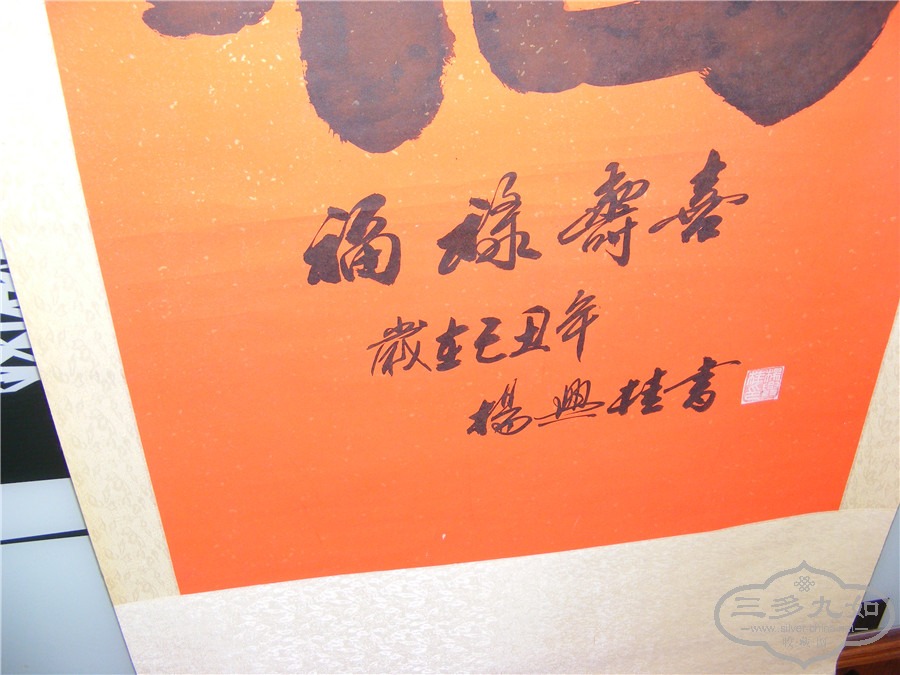 福禄壽喜
歲在己丑年
楊興桂書
三多九如